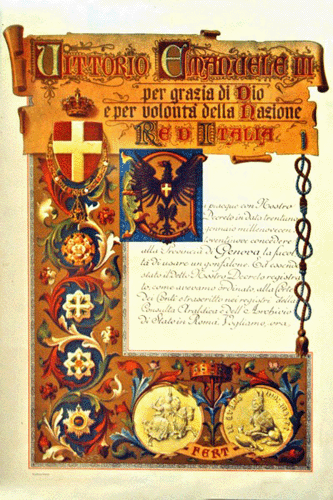 Vittorio Emanuele III
per grazia di Dio
e per volontà della Nazione
Re d'Italia
piacque con Nostro
Decreto in data trentuno
gennaio millenovecen-
totrentanove concedere
alla Provincia di Genova la facol-
tà di usare un gonfalone. Ed essendo
stato il detto Nostro Decreto registra-
to, come avevamo ordinato, alla Corte
dei Conti e trascritto nei registri della
Consulta Araldica e dell'Archivio
di Stato in Roma, Vogliamo, ora,
FERT